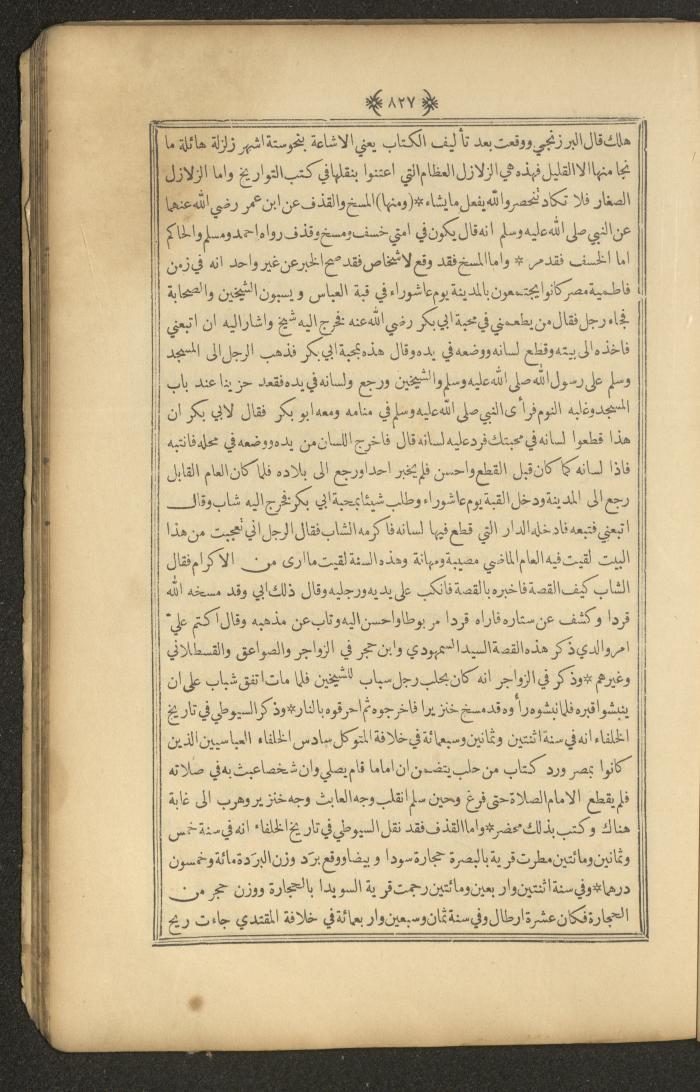 ٨٢٧
هلك قال البرزنجي ووقعت بعد تأليف الكتاب يعني الاشاعة بنحو ستة اشهر زلزلة هائلة ما
نجا منها الا القليل فهذه هي الزلازل العظام التي اعتنوا بنقلها في كتب التواريخ واما الزلازل
الصغار فلا تكاد تنحصر والله يفعل مايشاء * (ومنها) المسخ والقذف عن ابن عمر رضي الله عنهما
عن النبي صلى الله عليه وسلم انه قال يكون في امتي خسف ومسخ وقذف رواه احمد ومسلم والحاكم
اما الخسف فقد مر * واما المسخ فقد وقع لاشخاص فقد صح الخبر عن غير واحد انه في زمن
فاطمية مصر كانوا يجتمعون بالمدينة يوم عاشوراء في قبة العباس ويسبون الشيخين والصحابة
فجاء رجل فقال من يطعمني في محبة ابي بكر رضي الله عنه فخرج اليه شيخ واشار اليه ان اتبعني
فاخذه الى بيته وقطع لسانه ووضعه في يده وقال هذه بمحبة ابي بكر فذهب الرجل الى المسجد
وسلم على رسول الله صلى الله عليه وسلم والشيخين ورجع ولسانه في يده فقعد حزينا عند باب
المسجد وغلبه النوم فرأى النبي صلى الله عليه وسلم في منامه ومعه ابو بكر فقال لابي بكر ان
هذا قطعوا لسانه في محبتك فرد عليه لسانه قال فاخرج اللسان من يده ووضعه في محله فانتبه
فاذا لسانه كما كان قبل القطع واحسن فلم يخبر احدا ورجع الى بلاده فلما كان العام القابل
رجع الى المدينة ودخل القبة يوم عاشوراء وطلب شيئا بمحبة ابي بكر فخرج اليه شاب وقال
اتبعني فتبعه فادخله الدار التي قطع فيها لسانه فاكرمه الشاب فقال الرجل اني تعجبت من هذا
البيت لقيت فيه العام الماضي مصيبة ومهانة وهذه السنة لقيت ما ارى من الاكرام فقال
الشاب كيف القصة فاخبره بالقصة فانكب على يديه ورجليه وقال ذلك ابي وقد مسخه الله
قردا وكشف عن ستارة فاراه قردا مربوطا واحسن اليه وتاب عن مذهبه وقال اكتم عليّ
امر والدي ذكر هذه القصة السيد السمهودي وابن حجر في الزواجر والصواعق والقسطلاني
وغيرهم * وذكر في الزواجر انه كان بحلب رجل سباب للشيخين فلما مات اتفق شباب على ان
ينبشوا قبره فلما نبشوه رأوه قد مسخ خنزيرا فاخرجوه ثم احرقوه بالنار * وذكر السيوطي في تاريخ
الخلفاء انه في سنة اثنتين وثمانين وسبعمائة في خلافة المتوكل سادس الخلفاء العباسيين الذين
كانوا بمصر ورد كتاب من حلب يتضمن ان اماما قام يصلي وان شخصا عبث به في صلاته
فلم يقطع الامام الصلاة حتى فرغ وحين سلم انقلب وجه العابث وجه خنزير وهرب الى غابة
هناك وكتب بذلك محضر * واما القذف فقد نقل السيوطي في تاريخ الخلفاء انه في سنة خمس
وثمانين ومائتين مطرت قرية بالبصرة حجارة سودا وبيضا ووقع برَد وزن البردة مائة وخمسون
درهما * وفي سنة اثنتين واربعين ومائتين رجمت قرية السويدا بالحجارة ووزن حجر من
الحجارة فكان عشرة ارطال وفي سنة ثمان وسبعين واربعمائة في خلافة المقتدي جاءت ريح